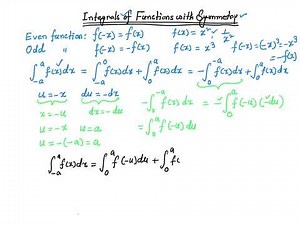 Integrals of Functions with Symmetry
Even function: f(-x) = f(x) f(x) = x² 1/x²
Odd " f(-x) = -f(x) f(x) = x³ f(-x) = (-x)³ = -x³
= -f(x)
∫₋ₐᵃ f(x)dx = ∫₋ₐ⁰ f(x)dx + ∫₀ᵃ f(x)dx = -∫₀⁻ᵃ f(x)dx + ∫₀ᵃ f(x)dx
u = -x du = -dx
x = -u dx = -du
-∫₀⁻ᵃ f(x) dx = -∫₀ᵃ f(-u)(-du)
u = -x u = a
u = -(-a) = a
= ∫₀ᵃ f(-u) du
∫₋ₐᵃ f(x)dx = ∫₀ᵃ f(-u)du + ∫₀ᵃ f(